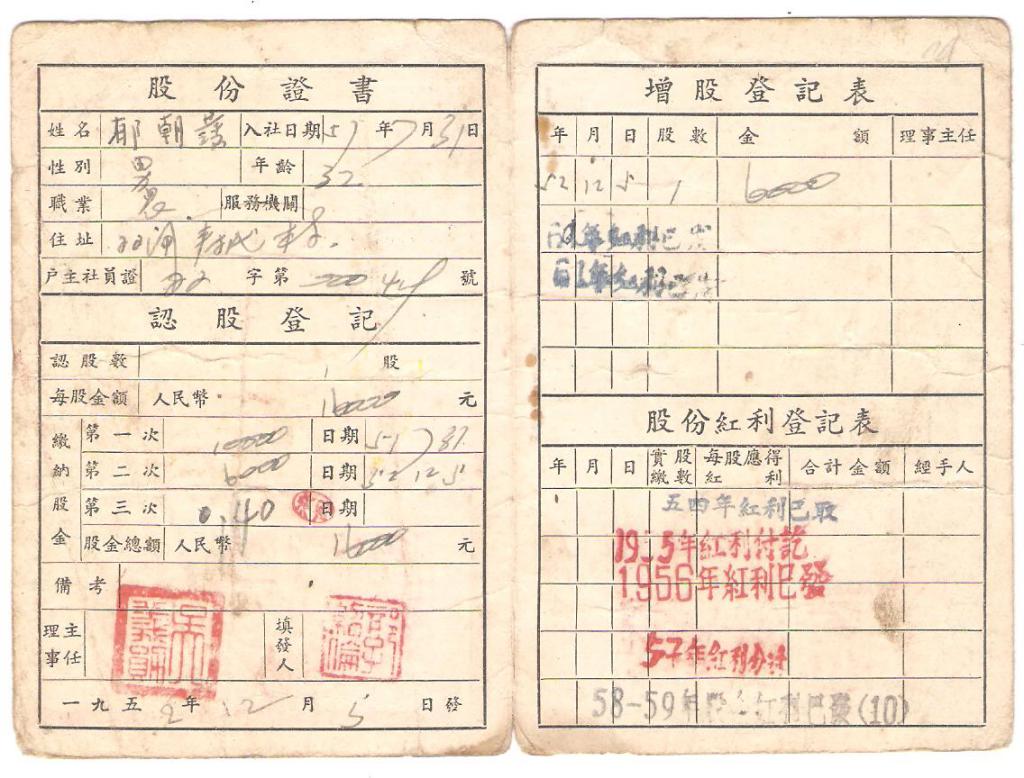 股份證書
姓名 朝 入社日期 51 年 7 月 31 日
性別 男 年齡 32
職業 農 服務機關
住址
戶主社員證 字第 號
認股登記
認股數 1 股
每股金額 人民幣 16000 元
繳納股金 第一次 10000 日期 51 7 31
第二次 6000 日期 52 12 5
第三次 0.40 日期
股金總額 人民幣 16000 元
備考
理事主任 填發人
一九五2年 12 月 5 日發
增股登記表
年 月 日 股數 金額 理事主任
52 12 5 1 6000
年紅利已
年紅利
股份紅利登記表
年 月 日 實繳股數 每股應得紅利 合計金額 經手人
五四年紅利已取
1955年紅利付訖
1956年紅利已發
57年紅利分訖
58-59年股金紅利已發(10)